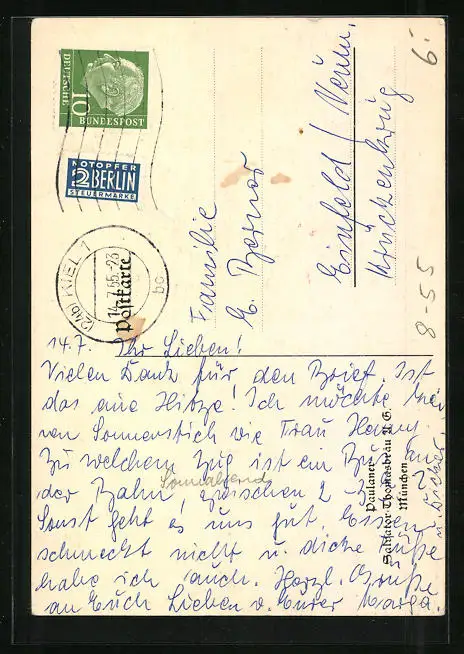 DEUTSCHE
10
BUNDESPOST
NOTOPFER
2 BERLIN
STEUERMARKE
(24b) KIEL 1
14.7.55.-23
bc
Postkarte
Familie
E.
Einfeld / Neum.
Krückenkrug
6.-
8-55
14.7. Ihr Lieben!
Vielen Dank für den Brief. Ist
das eine Hitze! Ich möchte
nen Sonnenstich wie Frau
Zu welchem Zug ist ein Bus an
der Bahn, zwischen 2 - 3 Uhr
Sonnabend
Sonst geht es uns gut. Essen
schmeckt nicht u. dicke Füße
habe ich auch. Herzl. Grüße
an Euch Lieben v. Eurer Marga.
u. Dicker
Paulaner
Salvator-Thomasbräu A.G.
München